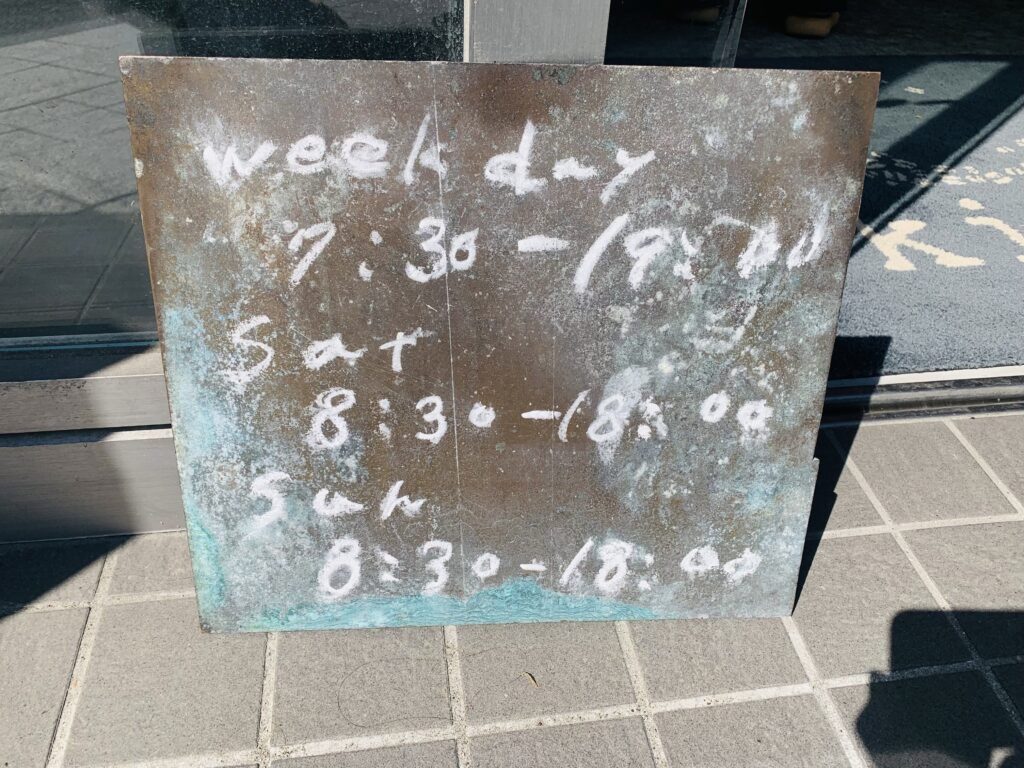 week day
7:30-19:00
Sat
8:30-18:00
Sun
8:30-18:00